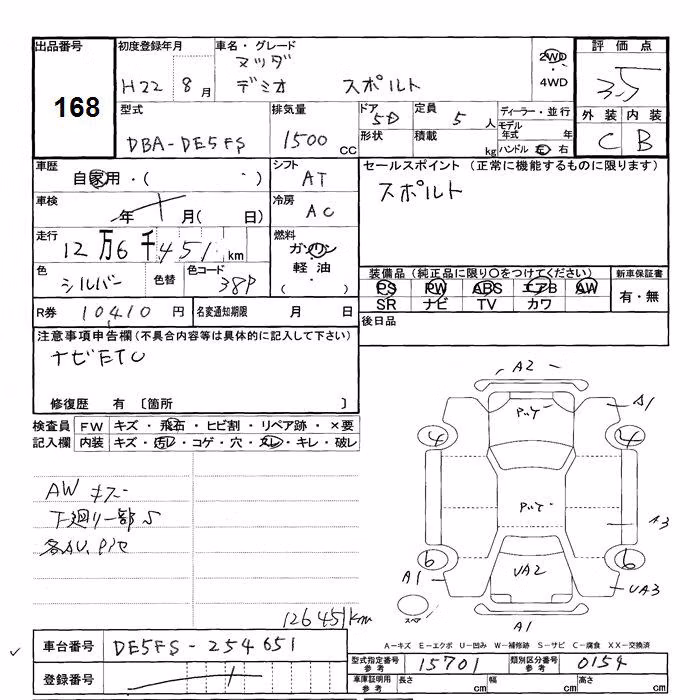 出品番号 初度登録年月 車名・グレード 2WD 評価点
マツダ
H22 8月 デミオ スポルト 4WD 3.5
168
型式 排気量 ドア 5D 定員 5人 ディーラー・並行 外装 内装
DBA-DE5FS 1500 CC 形状 積載 kg モデル年式 年 C B
ハンドル 左 右
車歴 シフト セールスポイント(正常に機能するものに限ります)
自家用・( ) AT スポルト
車検 冷房
年 月( 日) AC
走行 燃料
12万6千451km ガソリン
軽油
( ・ )
色 色替 色コード 装備品(純正品に限り○をつけてください) 新車保証書
シルバー 38P PS PW ABS エアB AW 有・無
SR ナビ TV カワ
R券 10410円 名変通知期限 月 日 後日品
注意事項申告欄(不具合内容等は具体的に記入して下さい)
ナビETC
修復歴 有 〔箇所 〕
検査員 FW キズ・飛石・ヒビ割・リペア跡・×要
記入欄 内装 キズ・汚レ・コゲ・穴・スレ・キレ・破レ
A2
A1
4 4
AW キズ
下廻り一部S
A3
6 6
A1 UA2 UA3
スペア
126451km A1
A−キズ E−エクボ U−凹み W−補修跡 S−サビ C−腐食 XX−交換済
車台番号 DE5FS-254651
型式指定番号 参考 15701 類別区分番号 参考 0154
登録番号
車庫証明用 参考 長さ cm 幅 cm 高さ cm